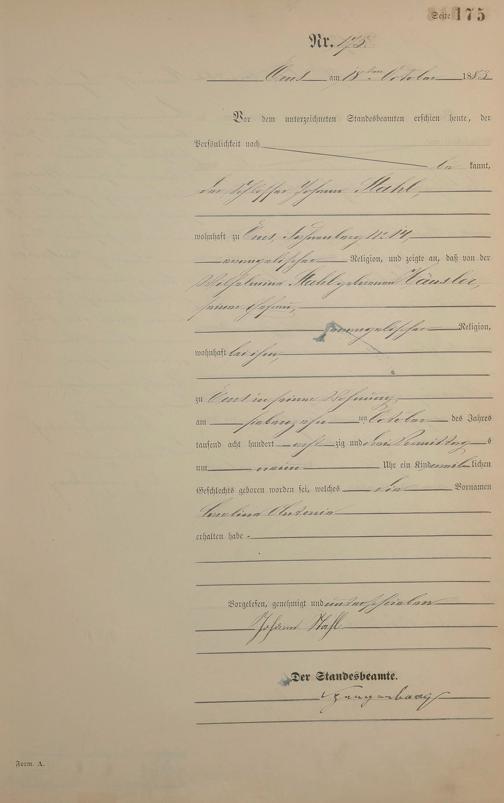 Seite 175
Nr. 175
Ems am 18ten October 1883
Vor dem unterzeichneten Standesbeamten erschien heute, der
Persönlichkeit nach
be kannt,
der Schlosser Johann Stahl,
wohnhaft zu Ems, No 14,
evangelischer Religion, und zeigte an, daß von der
Wilhelmine Stahl geborenen Häusler,
seiner Ehefrau,
evangelischer Religion,
wohnhaft bei ihm,
zu Ems in seiner Wohnung
am siebenzehn ten October des Jahres
tausend acht hundert acht zig und drei Vormittag s
um neun Uhr ein Kind weib lichen
Geschlechts geboren worden sei, welches die Vornamen
Carolina Antonia
erhalten habe.
Vorgelesen, genehmigt und unterschrieben
Johann Stahl
Der Standesbeamte.
Form. A.